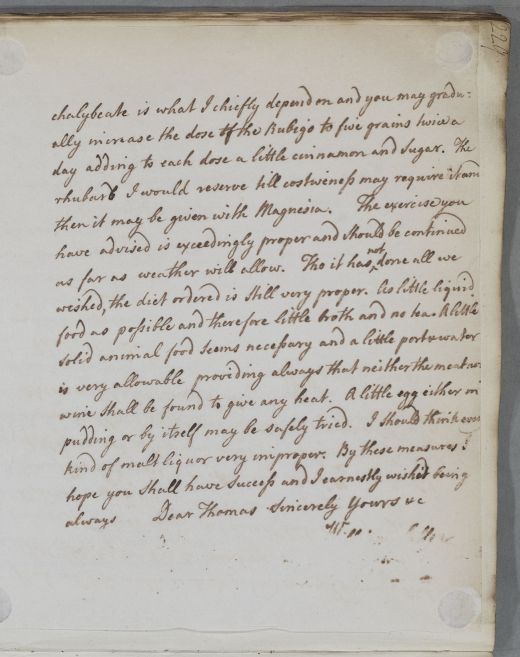 229
chalybeate is what I chiefly depend on and you may gradu:
ally increase the dose of the Rubigo to five grains twice a
day adding to each dose a little cinnamon and Sugar. The
rhubarb I would reserve till costiveness may require it and
then it may be given with Magnesia. The exercise you
have advised is exceedingly proper and should be continued
as far as weather will allow. Tho it has not done all we
wished, the diet ordered is still very proper. As little liquid
food as possible and therefore little broth and no tea. A little
solid animal food seems necessary and a little port & water
is very allowable providing always that neither the meat nor
wine shall be found to give any heat. A little egg either in
pudding or by itself may be safely tried. I should think every
kind of malt liquor very improper. By these measures I
hope you shall have success and I earnestly wish it being
always Dear Thomas Sincerely Yours &c